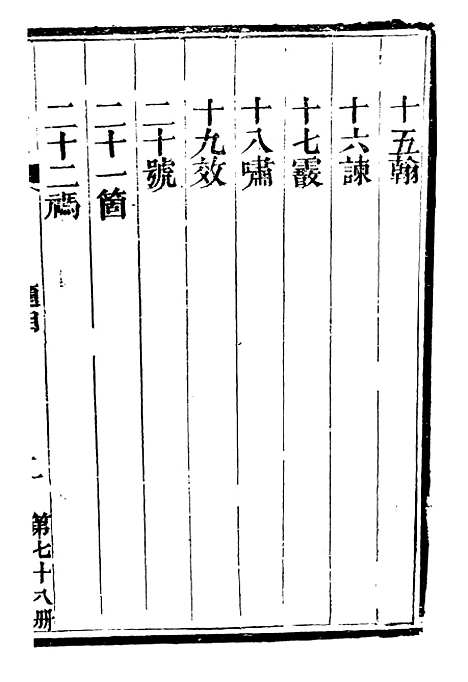 十五翰
十六諫
十七霰
十八嘯
十九效
二十號
二十一箇
二十二禡
第七十八册